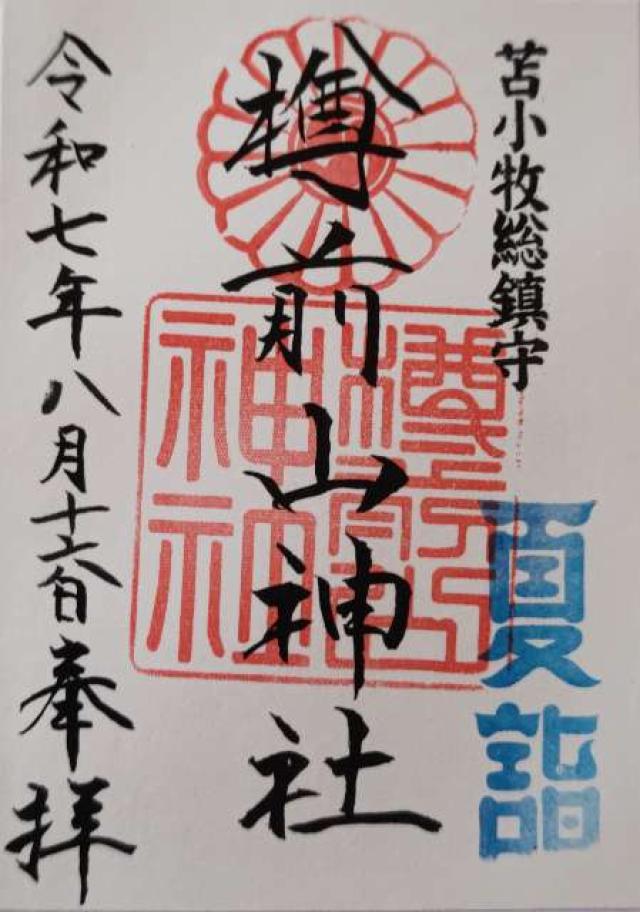 苫小牧総鎮守
夏詣
樽前山神社
令和七年八月十六日奉拝